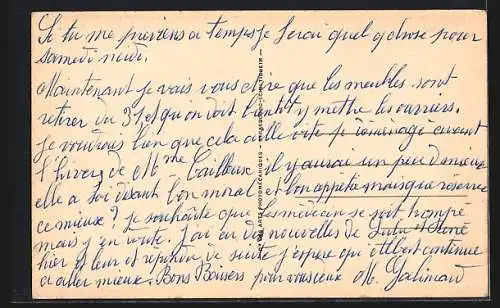 Si tu me préviens a temps je ferai quelq chose pour
samedi midi.
Maintenant je vais vous dire que les meubles sont
retirer du 31 et qu'on doit bientôt y mettre les ouvriers.
je voudrais bien que cela aille vite et déménagé avant
l'hiver de Mme Cailleux il y aurait un peu de mieux
elle a soi disant bon moral et bon appétit mais que réserve
ce mieux? je souhaite que les médecin se soit trompé
mais j'en doute. J'ai eu des nouvelles de Lulu et René
hier je leur et répondu de suite j'espère que ce continue
a aller mieux. Bons Baisers pour vous ceux M.
ARTS PHOTOMÉCANIQUES